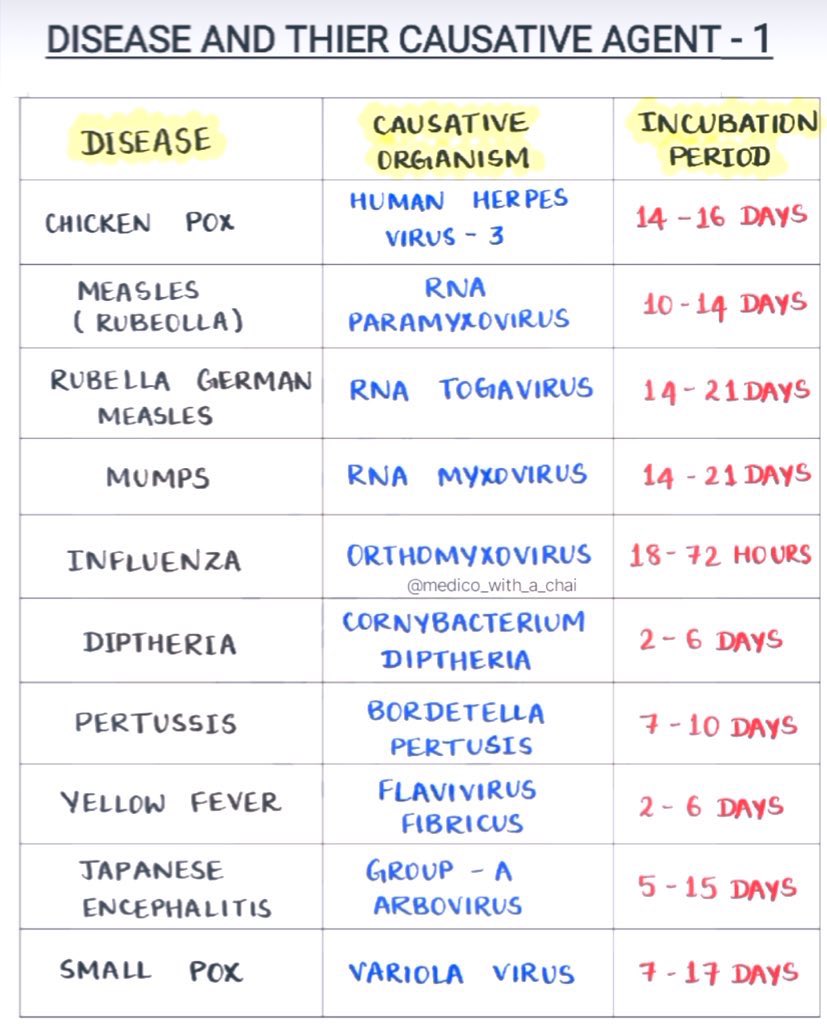 DISEASE AND THIER CAUSATIVE AGENT - 1
DISEASE
CAUSATIVE
ORGANISM
INCUBATION
PERIOD
CHICKEN POX
HUMAN HERPES
VIRUS - 3
14 - 16 DAYS
MEASLES
( RUBEOLLA)
RNA
PARAMYXOVIRUS
10 - 14 DAYS
RUBELLA GERMAN
MEASLES
RNA TOGAVIRUS
14 - 21 DAYS
MUMPS
RNA MYXOVIRUS
14 - 21 DAYS
INFLUENZA
ORTHOMYXOVIRUS
@medico_with_a_chai
18 - 72 HOURS
DIPTHERIA
CORNYBACTERIUM
DIPTHERIA
2 - 6 DAYS
PERTUSSIS
BORDETELLA
PERTUSIS
7 - 10 DAYS
YELLOW FEVER
FLAVIVIRUS
FIBRICUS
2 - 6 DAYS
JAPANESE
ENCEPHALITIS
GROUP - A
ARBOVIRUS
5 - 15 DAYS
SMALL POX
VARIOLA VIRUS
7 - 17 DAYS